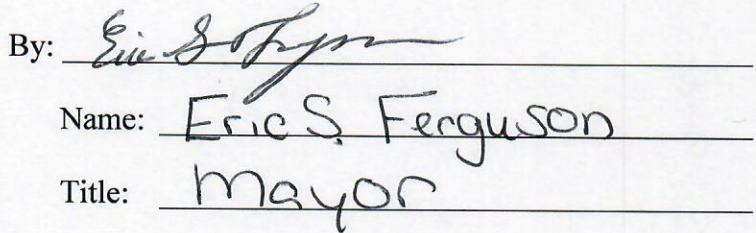 By: Eric S Ferguson
Name: Eric S. Ferguson
Title: Mayor